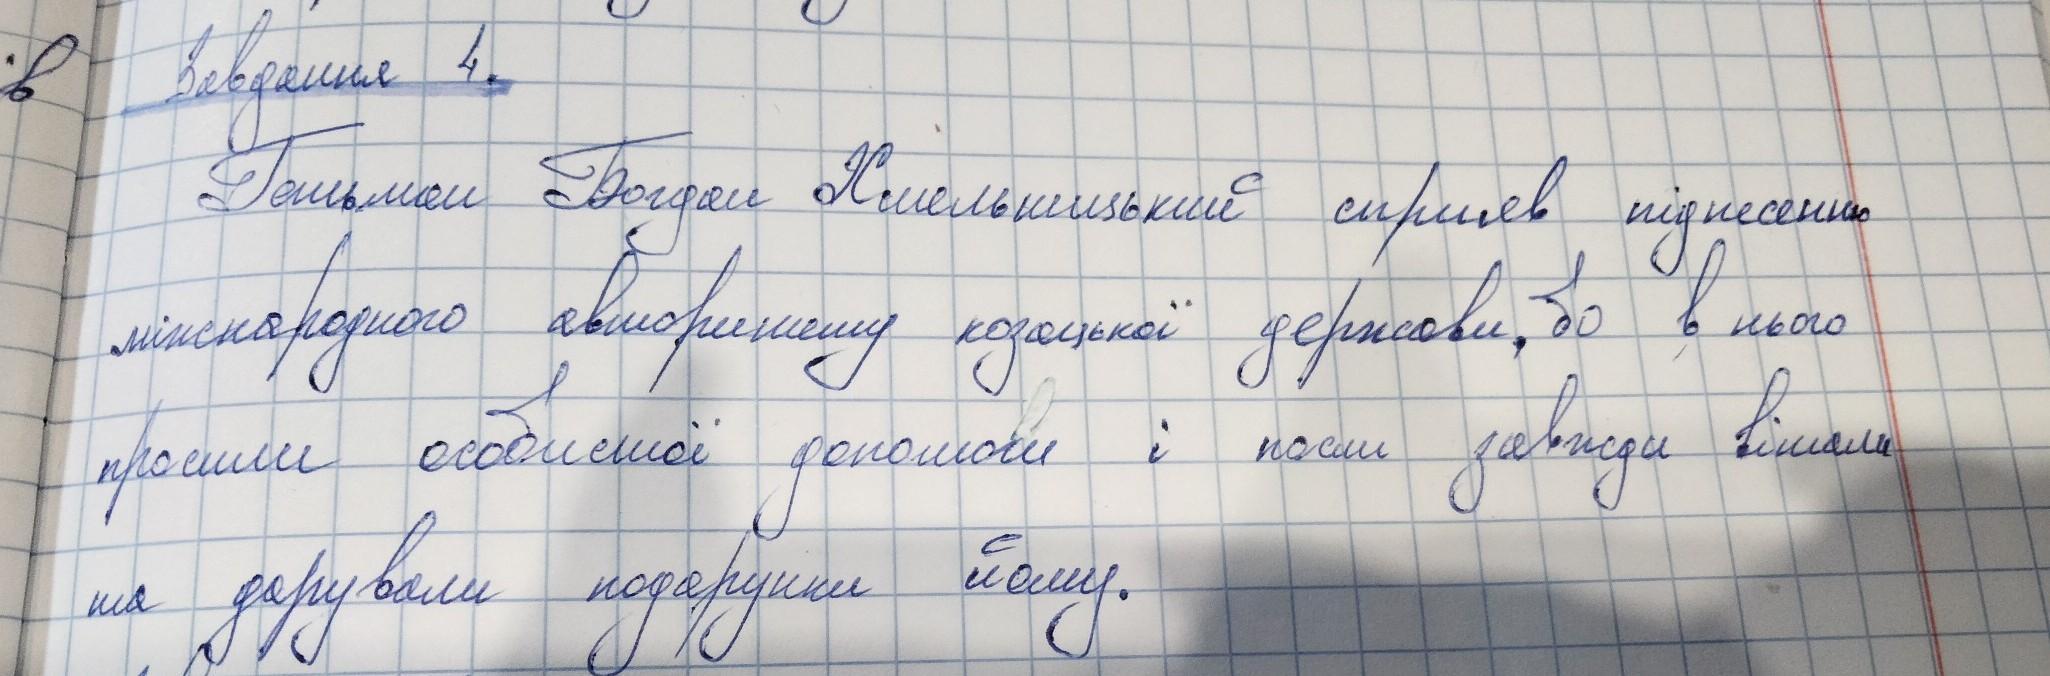 Завдання 4.
Гетьман Богдан Хмельницький сприяв піднесенню
міжнародного авторитету козацької держави, бо в нього
просили особистої допомоги і посли завжди вітали
та дарували подарунки йому.